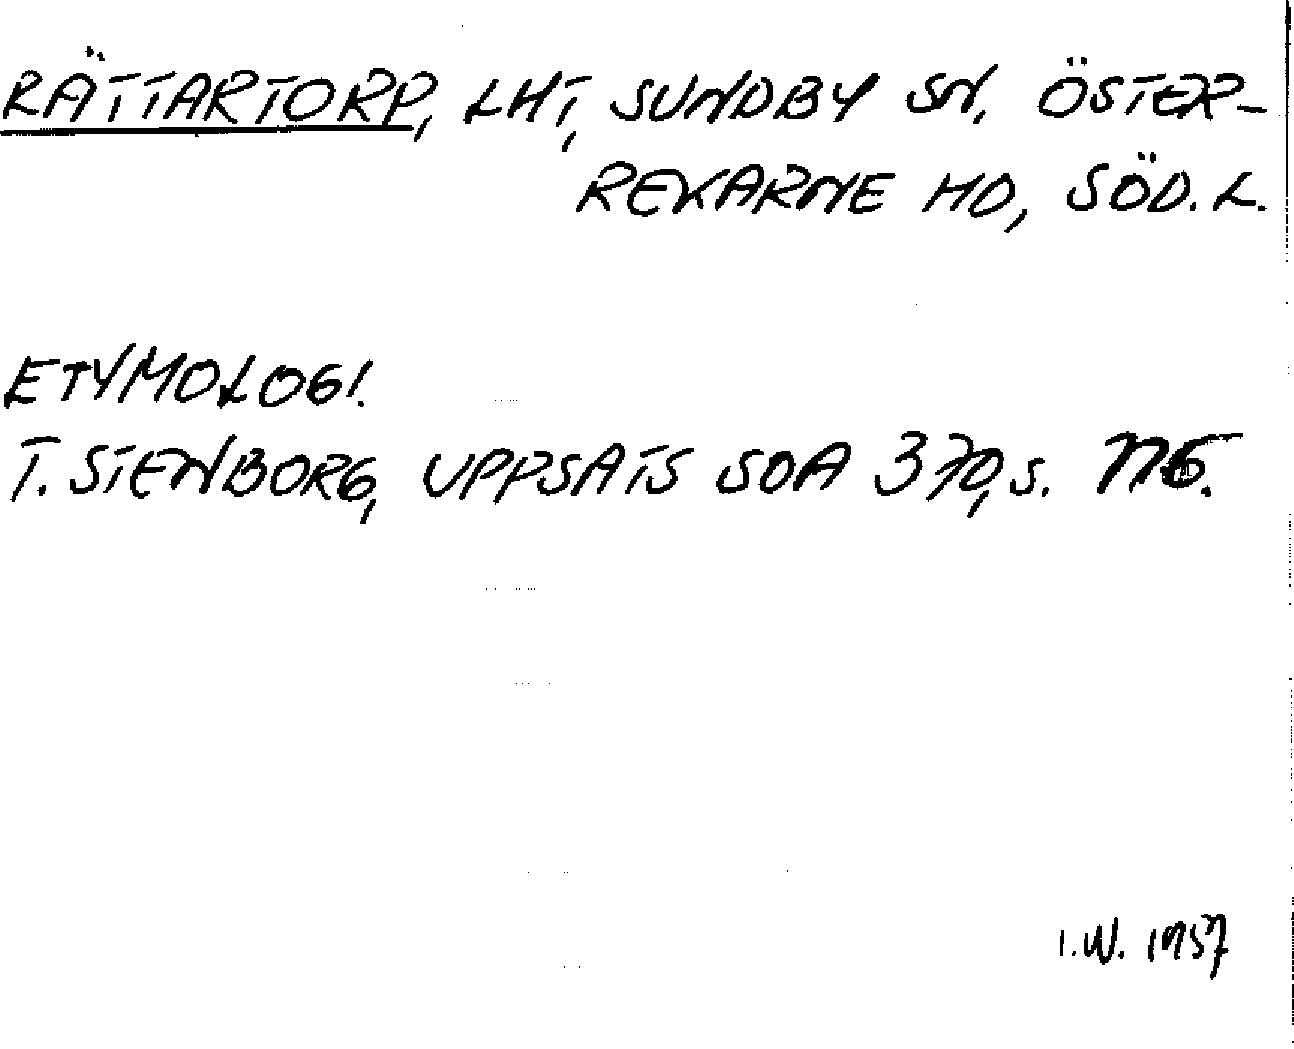 RÄTTARTORP, LHT, SUNDBY SN. ÖSTER-
REKARNE HD, SÖD.L.
ETYMOLOGI.
T. STENBORG, UPPSATS SOA 370, s.
I.W. 1957